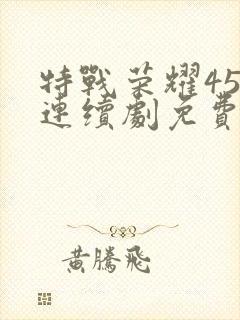 特戰榮耀45
連續劇免費
黃騰飛